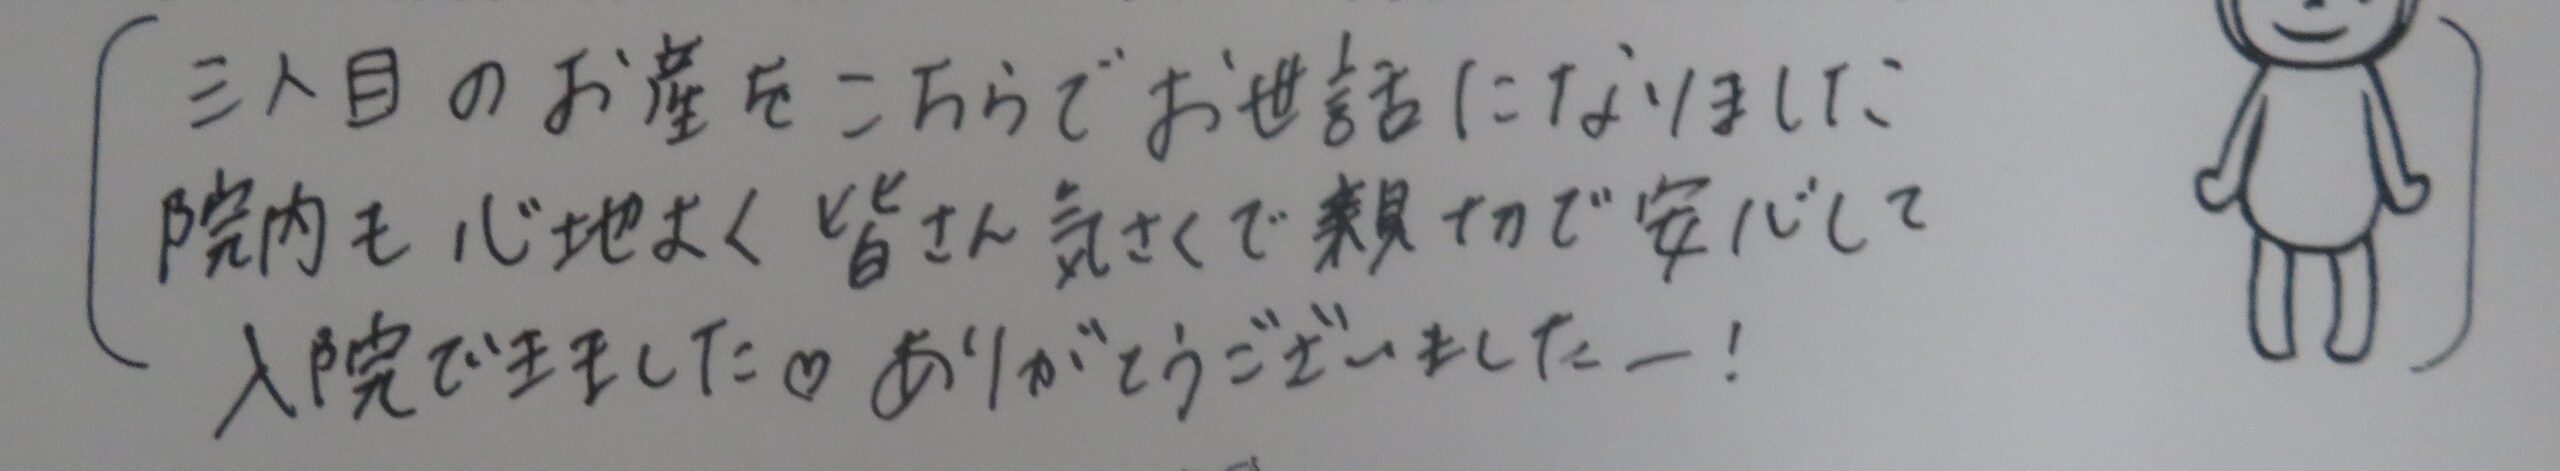 三人目のお産をこちらでお世話になりました
院内も心地よく皆さん気さくで親切で安心して
入院できました♡ありがとうございましたー!